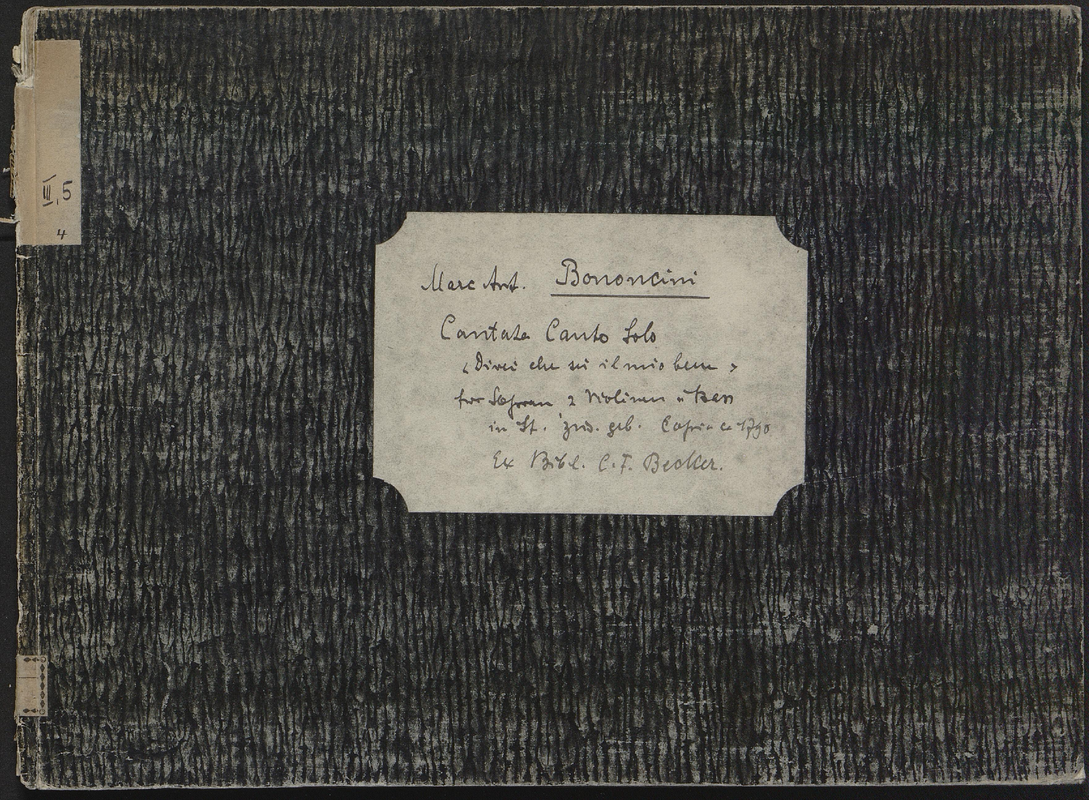 III, 5
4
Marc Ant. Bononcini
Cantata Canto Solo
"Direi che sei il mio bene"
for Sopran 2 Violinen u Bass
in St. zus. geb. Copie ca 1790
Ex Bibl. C. F. Becker.